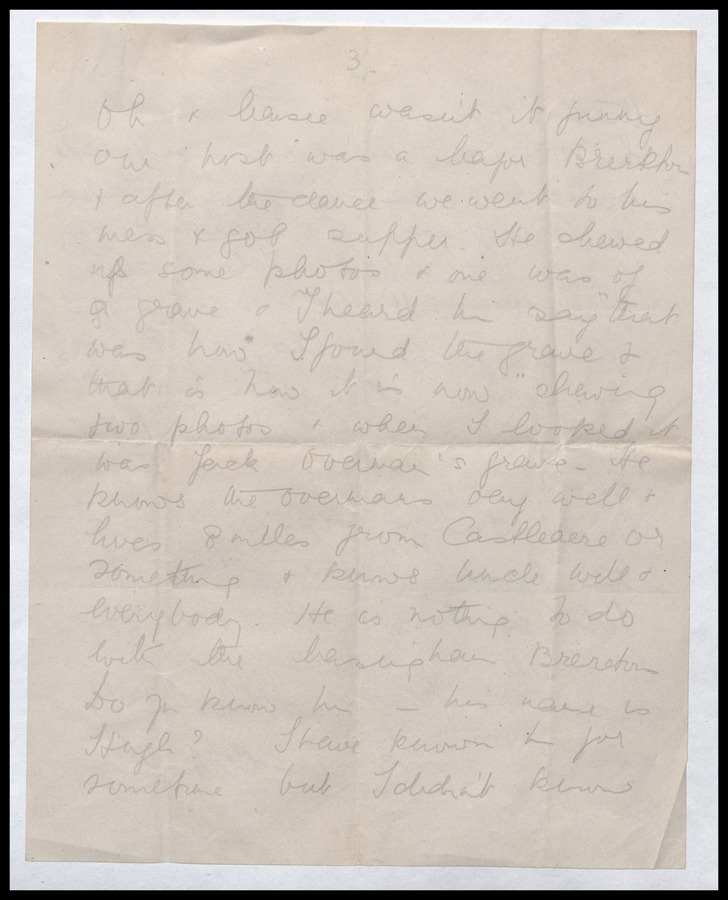 3.
Oh & wasn't it funny
our host was a Major Brereton
& after the dance we went to his
mess & got supper. He shewed
us some photos & one was of
a grave & I heard him say "that
was how I found the grave &
that is how it is now" shewing
two photos & when I looked it
was Jack Overman's grave - He
knows the Overmans very well &
lives 8 miles from Castleacre or
something & knows Uncle Will &
everybody. He is nothing to do
with the Brereton
Do you know him - his name is
Hugh? I have known him for
sometime but I didn't know